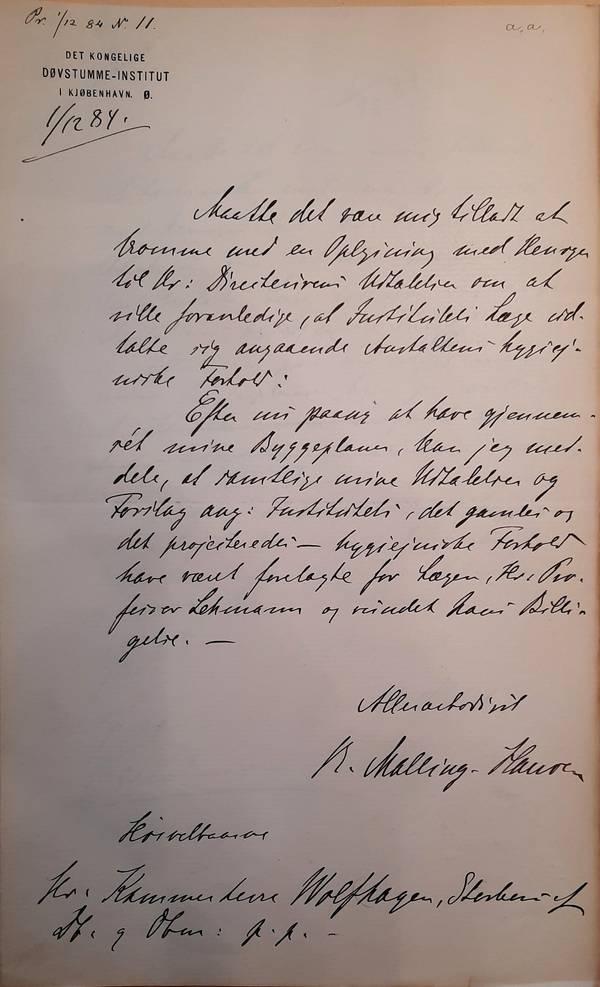 Pr. 1/12 84 N. 11.
a.a.
DET KONGELIGE
DØVSTUMME-INSTITUT
I KJØBENHAVN. Ø.
1/12 84.
Maatte det være mig tilladt at
komme med en Oplysning med Hensyn
til Hr: Directeurens Udtalelse om at
ville foranledige, at Instituttets Læge ud-
talte sig angaaende Anstaltens hygiej-
niske Forhold:
Efter nu paany at have gjennem-
sét mine Byggeplaner, kan jeg med-
dele, at samtlige mine Udtalelser og
Forslag ang: Institutets, det gamles og
det projecteredes — hygiejniske Forhold
have været forelagte for Lægen, Hr: Pro-
fessor Lehmann og vundet hans Billi-
gelse. —
Allerærbødigst
R. Malling-Hansen
Høivelbaarne
Hr: Kammerherre Wolfhagen, Storkors af
Db. og Dbm: p.p. -